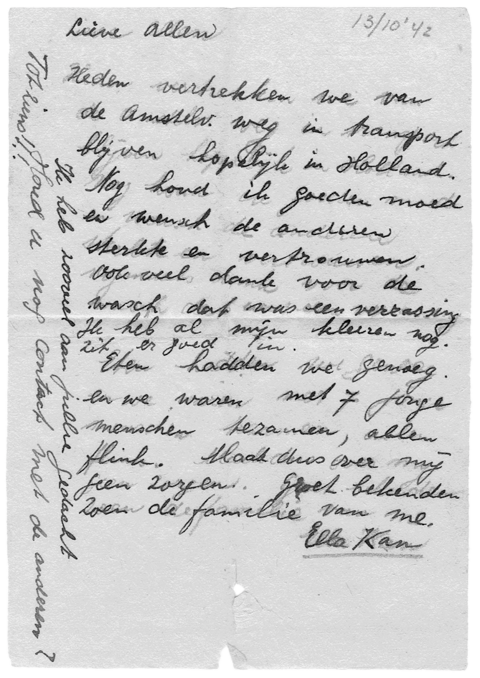 13/10 '42
Lieve allen
Heden vertrekken we van
de Amstelv. weg in transport
blijven hopelijk in Holland.
Nog houd ik goeden moed
en wensch de anderen
sterkte en vertrouwen.
Ook veel dank voor de
wasch dat was een verrassing
Ik heb al mijn kleeren nog.
Zit er goed in.
Eten hadden we genoeg.
en we waren met 7 jonge
menschen tezamen, allen
flink. Maak dus over mij
geen zorgen. Groet bekenden
Zoen de familie van me.
Ella Kan
Ik heb zooveel aan jullie gedacht
Tot ziens!! Houd u nog contact met de anderen?